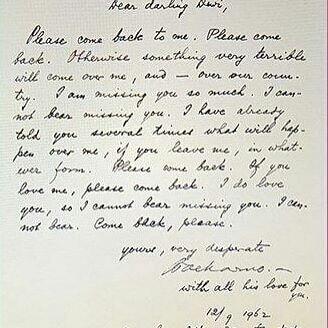 Dear darling Dewi,
Please come back to me. Please come
back. Otherwise something very terrible
will come over me, and — over our coun-
try. I am missing you so much. I can-
not bear missing you. I have already
told you several times what will hap-
pen over me, if you leave me, in what-
ever form. Please come back. If you
love me, please come back. I do love
you, so I cannot bear missing you. I can-
not bear. Come back, please.
yours, very desperate
Soekarno. —
with all his love for
you.
12/9 1962